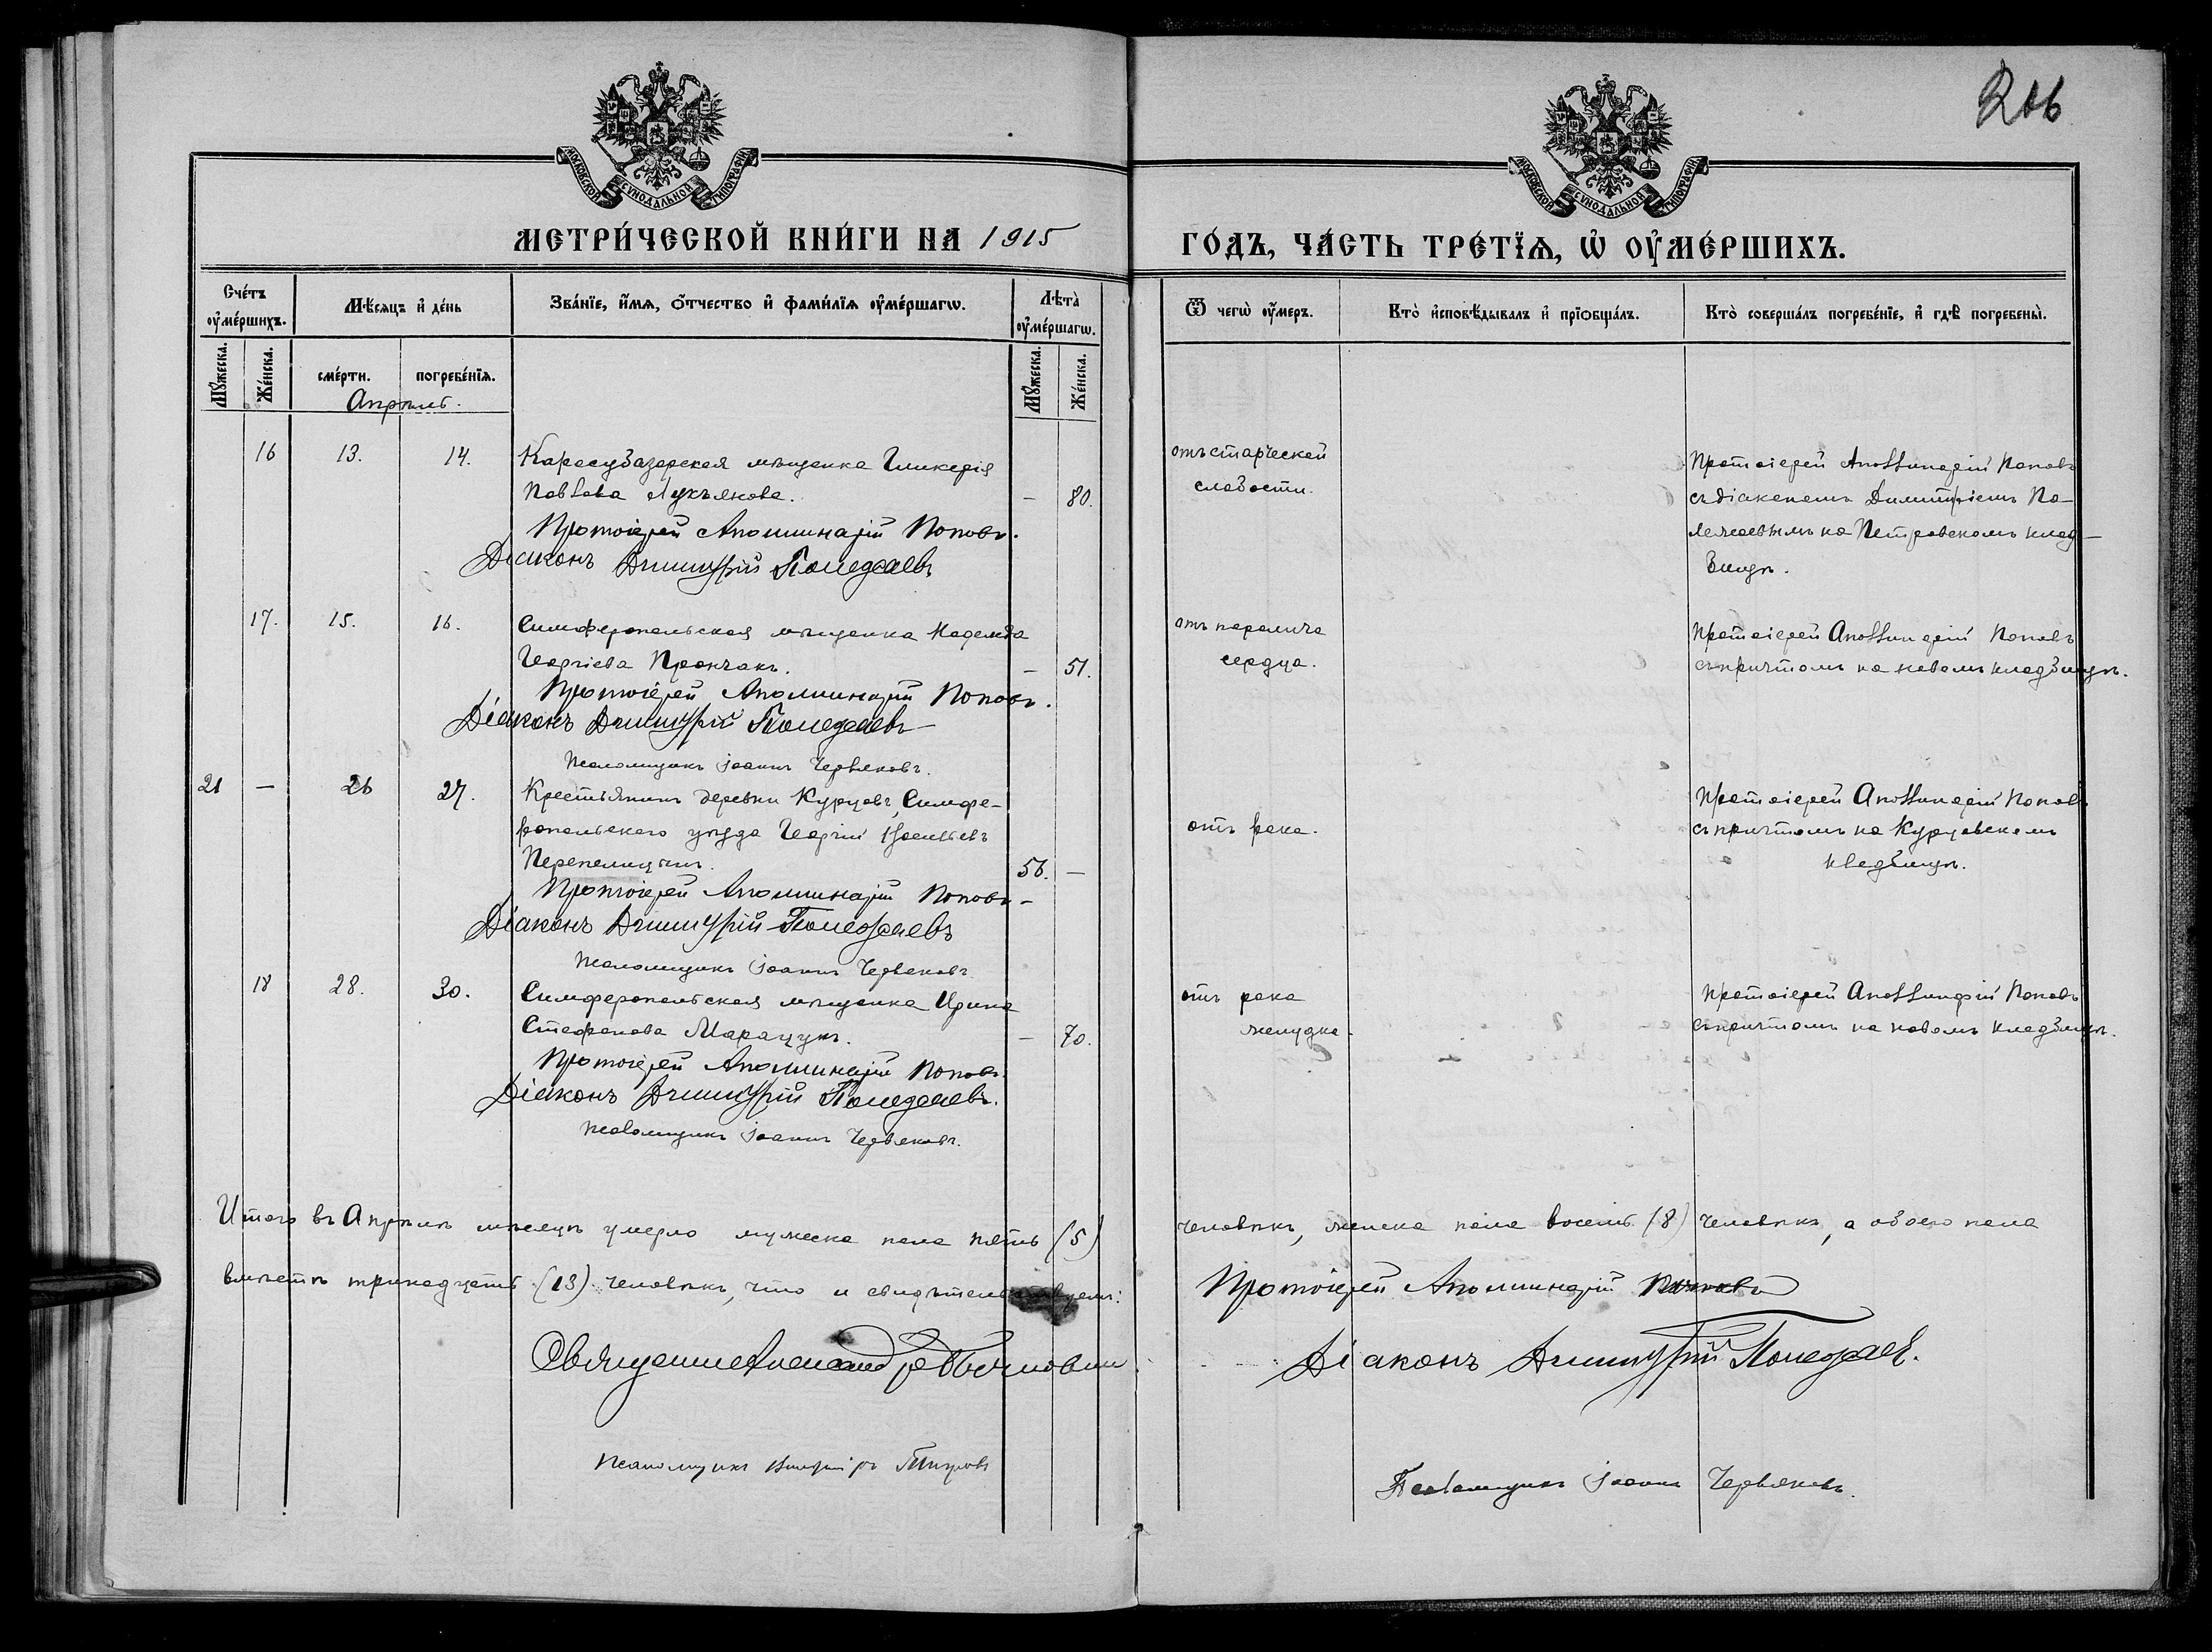 206
МОСКОВСКОЙ СѴНОДАЛЬНОЙ ТИПОГРАФІИ
МОСКОВСКОЙ СѴНОДАЛЬНОЙ ТИПОГРАФІИ
МЕТРИ́ЧЕСКОЙ КНИ́ГИ НА 1915
ГО́ДЪ, ЧА́СТЬ ТРЕ́ТЇѦ, Ѡ҆ ОУ҆МЕ́РШИХЪ.
Сче́тъ оу҆ме́ршихъ.
Мѣ́сяцъ и҆ де́нь
Зва́нїе, и҆́мѧ, ѻ҆́тчество и҆ фами́лїѧ оу҆ме́ршагѡ.
Лѣта̀ оу҆ме́ршагѡ.
Ѿ чегѡ̀ оу҆́меръ.
Кто̀ и҆сповѣ́дывалъ и҆ прїѻбща́лъ.
Кто̀ соверша́лъ погребе́нїе, и҆ гдѣ̀ погребены̀.
Мꙋ́жеска.
Же́нска.
сме́рти.
погребе́нїѧ.
Мꙋ́жеска.
Же́нска.
Апрѣль.
16 13. 14. Карасубазарская мѣщанка Гликерія
Павлова Лукъянова. – 80.
Протоіерей Аполлинарій Поповъ.
Діаконъ Димитрій Полежаевъ
отъ старческой
слабости.
Протоіерей Аполлинарій Поповъ
съ діакономъ Димитріемъ По-
лежаевымъ на Петровскомъ клад-
бищѣ.
17. 15. 16. Симферопольская мѣщанка Надежда
Георгіева Прончакъ. – 51.
Протоіерей Аполлинарій Поповъ.
Діаконъ Димитрій Полежаевъ
Псаломщикъ Іоаннъ Червяковъ.
отъ паралича
сердца.
Протоіерей Аполлинарій Поповъ
съ причтомъ на новомъ кладбищѣ.
21 – 26 27. Крестьянинъ деревни Курцовъ, Симфе-
ропольскаго уѣзда Георгій
Перепелицынъ. 56. –
Протоіерей Аполлинарій Поповъ
Діаконъ Димитрій Полежаевъ
Псаломщикъ Іоаннъ Червяковъ
отъ рака.
Протоіерей Аполлинарій Поповъ
съ причтомъ на Курцовскомъ
кладбищѣ.
18 28. 30. Симферопольская мѣщанка Ирина
Стефанова Марацукъ. – 70.
Протоіерей Аполлинарій Поповъ.
Діаконъ Димитрій Полежаевъ.
Псаломщикъ Іоаннъ Червяковъ.
отъ рака
желудка.
Протоіерей Аполлинарій Поповъ
съ причтомъ на новомъ кладбищѣ.
Итого въ Апрѣлѣ мѣсяцѣ умерло мужеска пола пять (5)
человѣкъ, женска пола восемь (8) человѣкъ, а обоего пола
вмѣстѣ тринадцать (13) человѣкъ, что и свидѣтельствуемъ:
Протоіерей Аполлинарій Поповъ
Діаконъ Димитрій Полежаевъ.
Псаломщикъ
Псаломщикъ Іоаннъ Червяковъ.